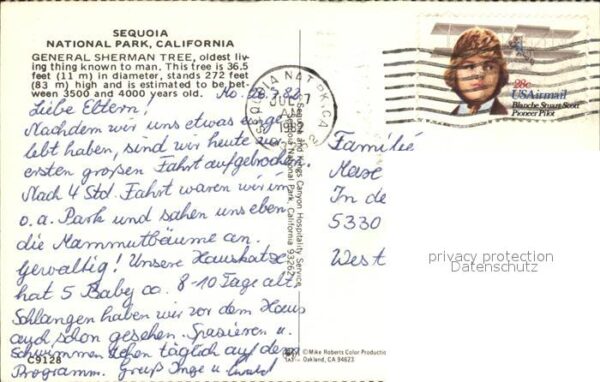 SEQUOIA
NATIONAL PARK, CALIFORNIA
GENERAL SHERMAN TREE, oldest liv-
ing thing known to man. This tree is 36.5
feet (11 m) in diameter, stands 272 feet
(83 m) high and is estimated to be bet-
ween 3500 and 4000 years old.
Liebe Eltern!
Nachdem wir uns etwas einge-
lebt haben, sind wir heute zur
ersten großen Fahrt aufgebrochen.
Nach 4 Std. Fahrt waren wir im
o.a. Park und sahen uns eben
die Mammutbäume an.
Gewaltig! Unsere Hauskatze
hat 5 Baby ca. 8-10 Tage alt,
Schlangen haben wir vor dem Haus
auch schon gesehen. Spazieren u.
Schwimmen stehen täglich auf dem
Programm. Gruß Inge u.
C9128
Sequoia and Kings Canyon Hospitality Service
Sequoia National Park, California 93262
©Mike Roberts Color Productio
Oakland, CA 94623
SEQUOIA NAT. PK, CA
JUL 7
AM
1982
28c
USAirmail
Blanche Stuart Scott
Pioneer Pilot
Familie
In de
5330
West
privacy protection
Datenschutz